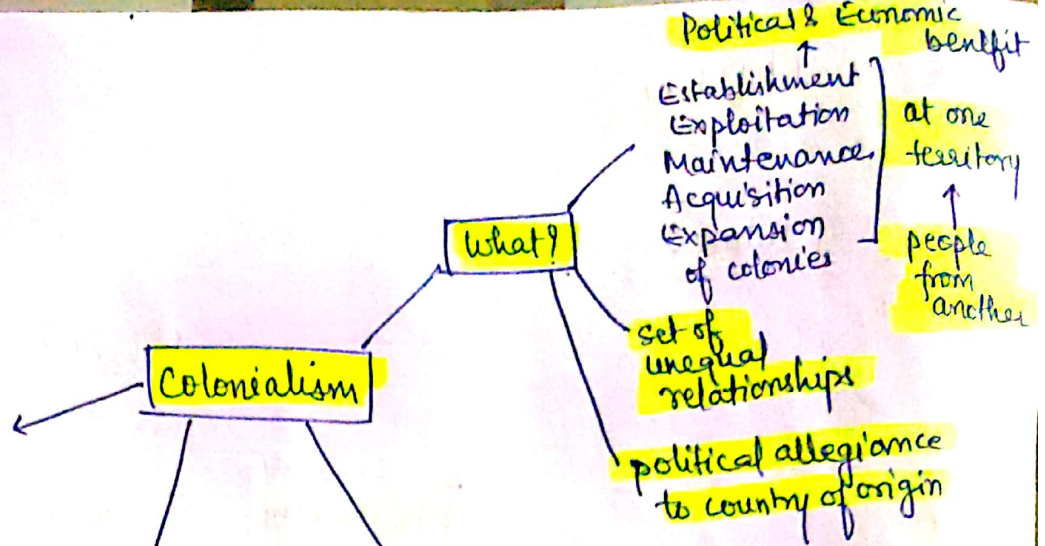 Political & Economic
benefit
↑
Establishment
Exploitation
Maintenance
Acquisition
Expansion
of colonies
at one
territory
↑
people
from
another
What?
set of
unequal
relationships
Colonialism
political allegiance
to country of origin